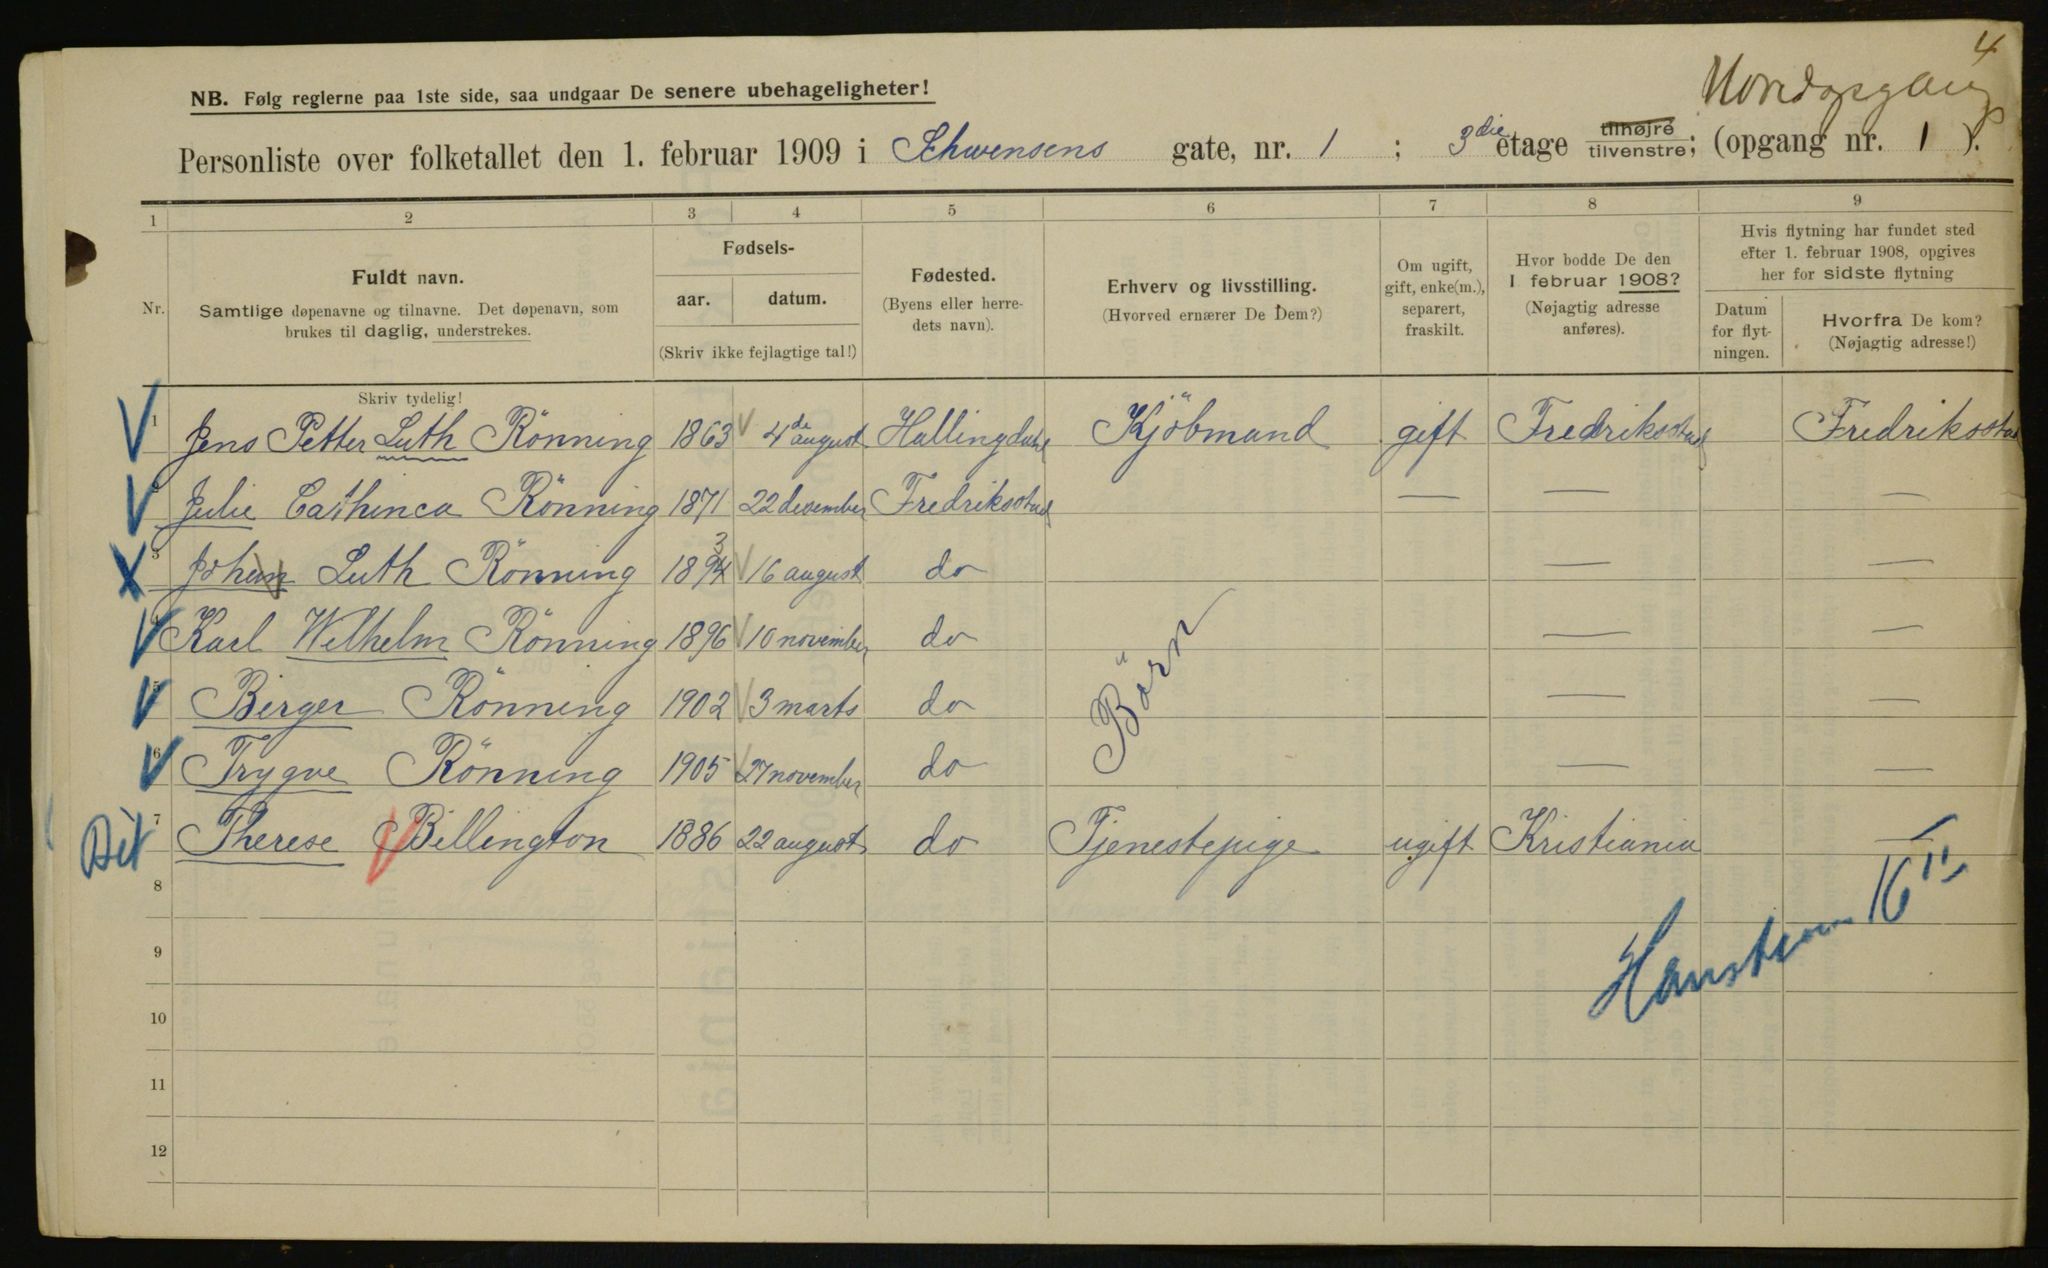 4
Hovedopgang
NB. Følg reglerne paa 1ste side, saa undgaar De senere ubehageligheter!
Personliste over folketallet den 1. februar 1909 i Schwensens gate, nr. 1 ; 3die etage tilhøjre tilvenstre; (opgang nr. 1 ).
1 2 3 4 5 6 7 8 9
Nr.
Fuldt navn.
Samtlige døpenavne og tilnavne. Det døpenavn, som
brukes til daglig, understrekes.
Fødsels-
aar. datum.
(Skriv ikke fejlagtige tal!)
Fødested.
(Byens eller herre-
dets navn).
Erhverv og livsstilling.
(Hvorved ernærer De Dem?)
Om ugift,
gift, enke(m.),
separert,
fraskilt.
Hvor bodde De den
1 februar 1908?
(Nøjagtig adresse
anføres).
Hvis flytning har fundet sted
efter 1. februar 1908, opgives
her for sidste flytning
Datum
for flyt-
ningen.
Hvorfra De kom?
(Nøjagtig adresse!)
Skriv tydelig!
1 Jens Petter Luth Rönning 1863 4de august Hallingdal Kjöbmand gift Fredriksstad Fredriksstad
Julie Cathinca Rönning 1871 22 desember Fredriksstad — — —
3 Johan Luth Rönning 1894 3 16 august do — —
Karl Wilhelm Rönning 1896 10 november do — —
5 Birger Rönning 1902 3 marts do — —
6 Trygve Rönning 1905 27 november do — —
Börn
7 Therese Billington 1886 22 august do Tjenestepige ugift Kristiania —
8
9
10
11
12